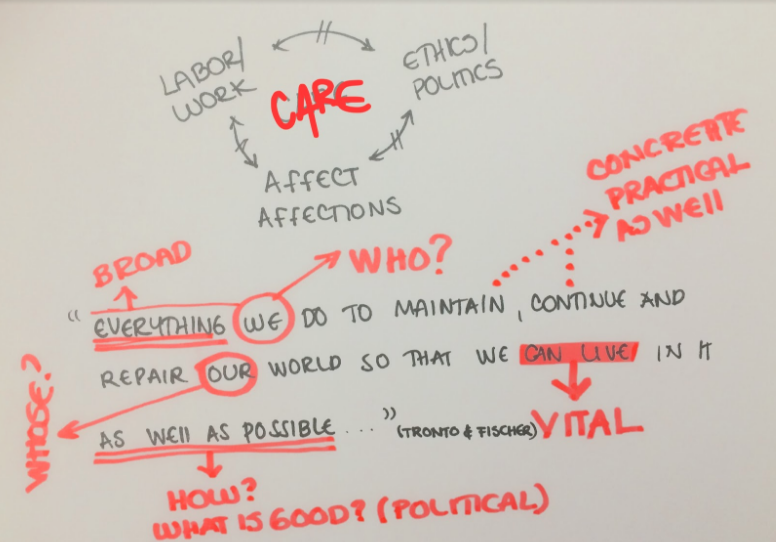 LABOR/
WORK
ETHICS/
POLITICS
CARE
AFFECT
AFFECTIONS
CONCREATE
PRACTICAL
AS WELL
BROAD
WHO?
"EVERYTHING WE DO TO MAINTAIN, CONTINUE AND
REPAIR OUR WORLD SO THAT WE CAN LIVE IN IT
AS WELL AS POSSIBLE ..." (TRONTO & FISCHER)
WHOSE?
VITAL
HOW?
WHAT IS GOOD? (POLITICAL)